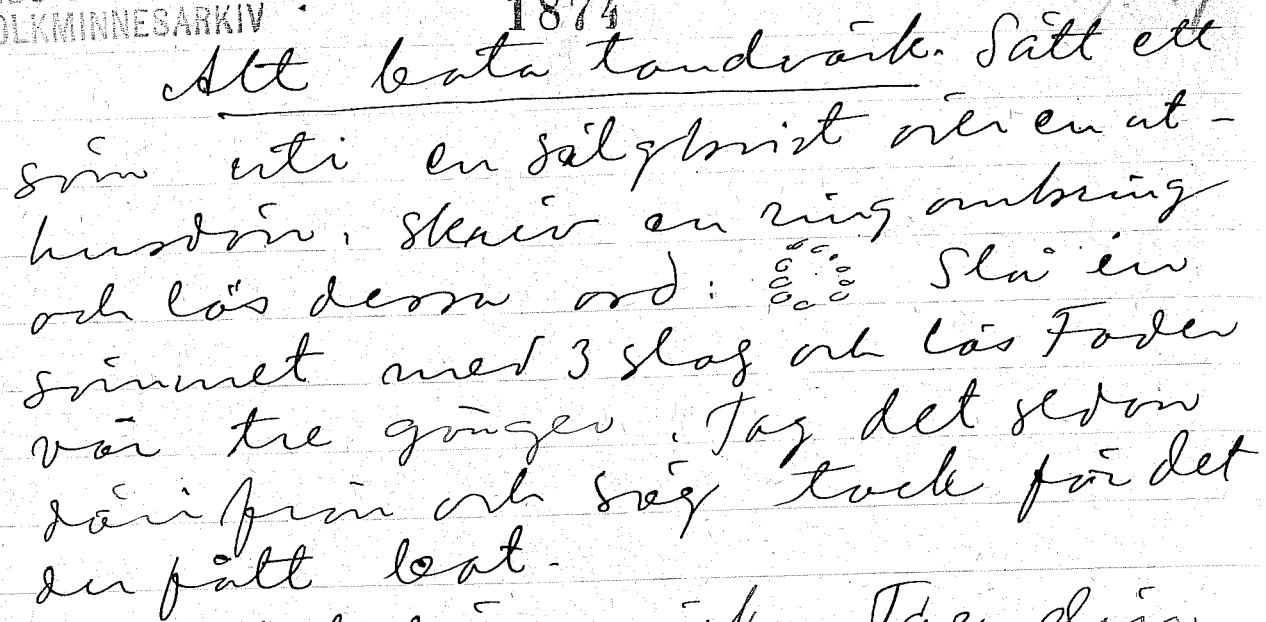 OLKMINNESARKIV 1874
Att bota tandvärk. Sätt ett
söm uti en sälgkvist över en ut-
husdörr, skriv en ring omkring
och läs dessa ord: Slå in
sömmet med 3 slag och läs Fader
vår tre gånger. Tag det sedan
därifrån och säg tack för det
du fått bot.